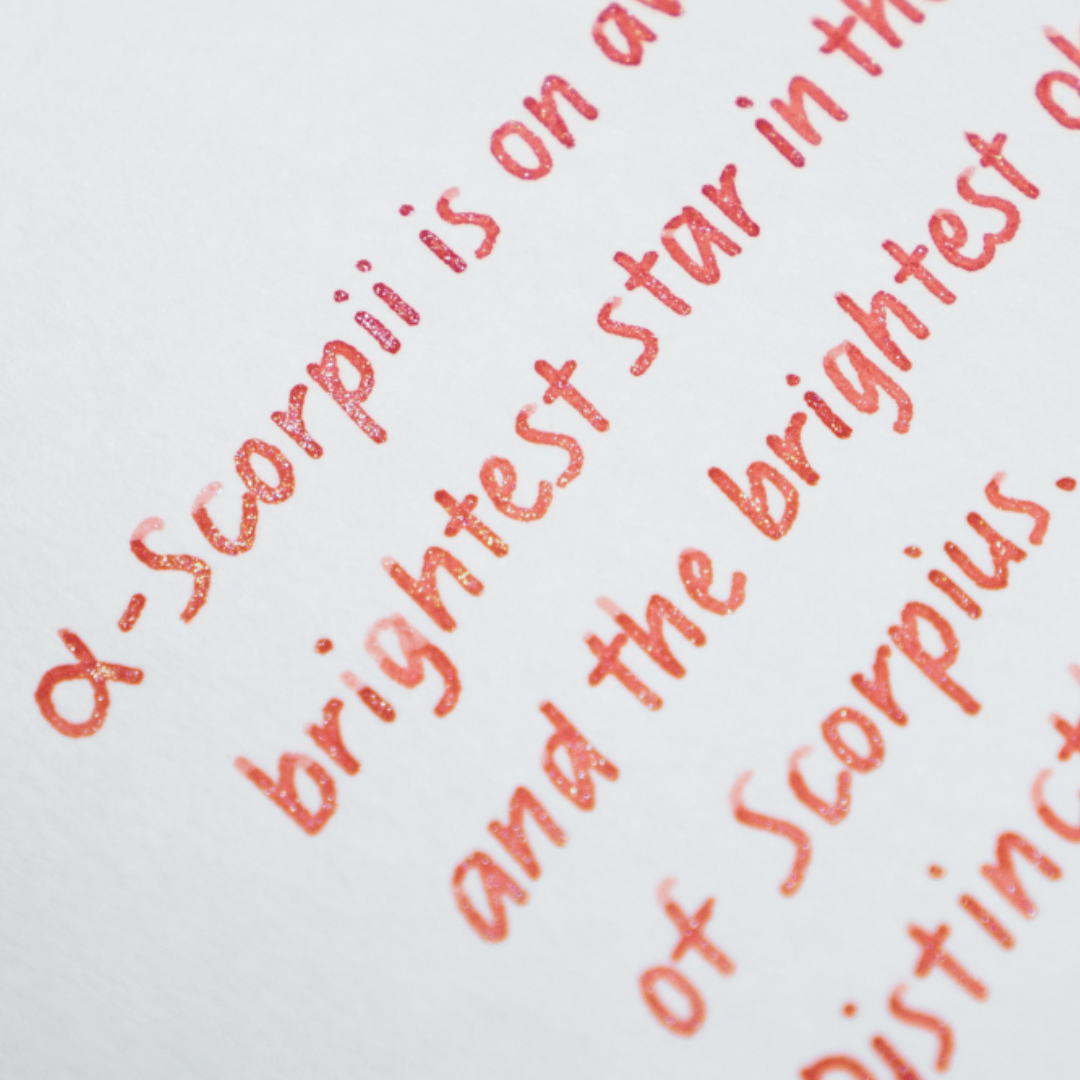 α-Scorpii is on
brightest star in
and the brightest
of Scorpius.